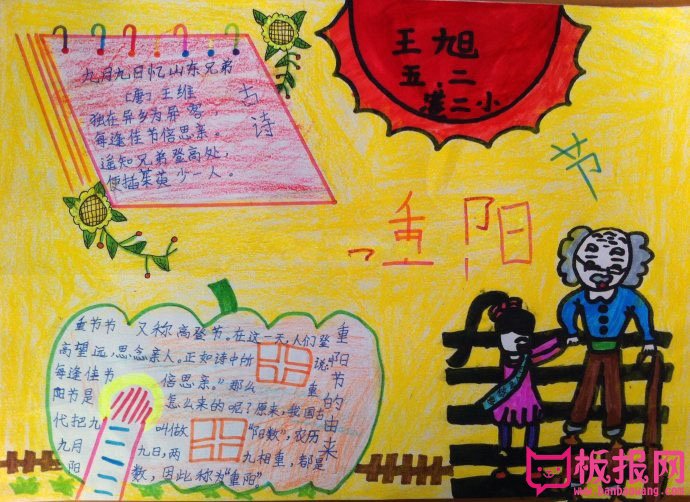 九月九日忆山东兄弟
[唐] 王维
独在异乡为异客，
每逢佳节倍思亲。
遥知兄弟登高处，
便插茱萸少一人。
古诗
王旭
五.二
二小
重阳
节
重阳节的由来
重节节 又称高登节。在这一天，人们登
高望远，思念亲人。正如诗中所 说
每逢佳节 倍思亲。"那么 重
阳节是 怎么来的呢？原来，我国古
代把九 叫做 "阳数"，农历
九月 九日，两 九相重，都是
阳 数，因此称为"重阳"
板报网
www.banbaowang.com